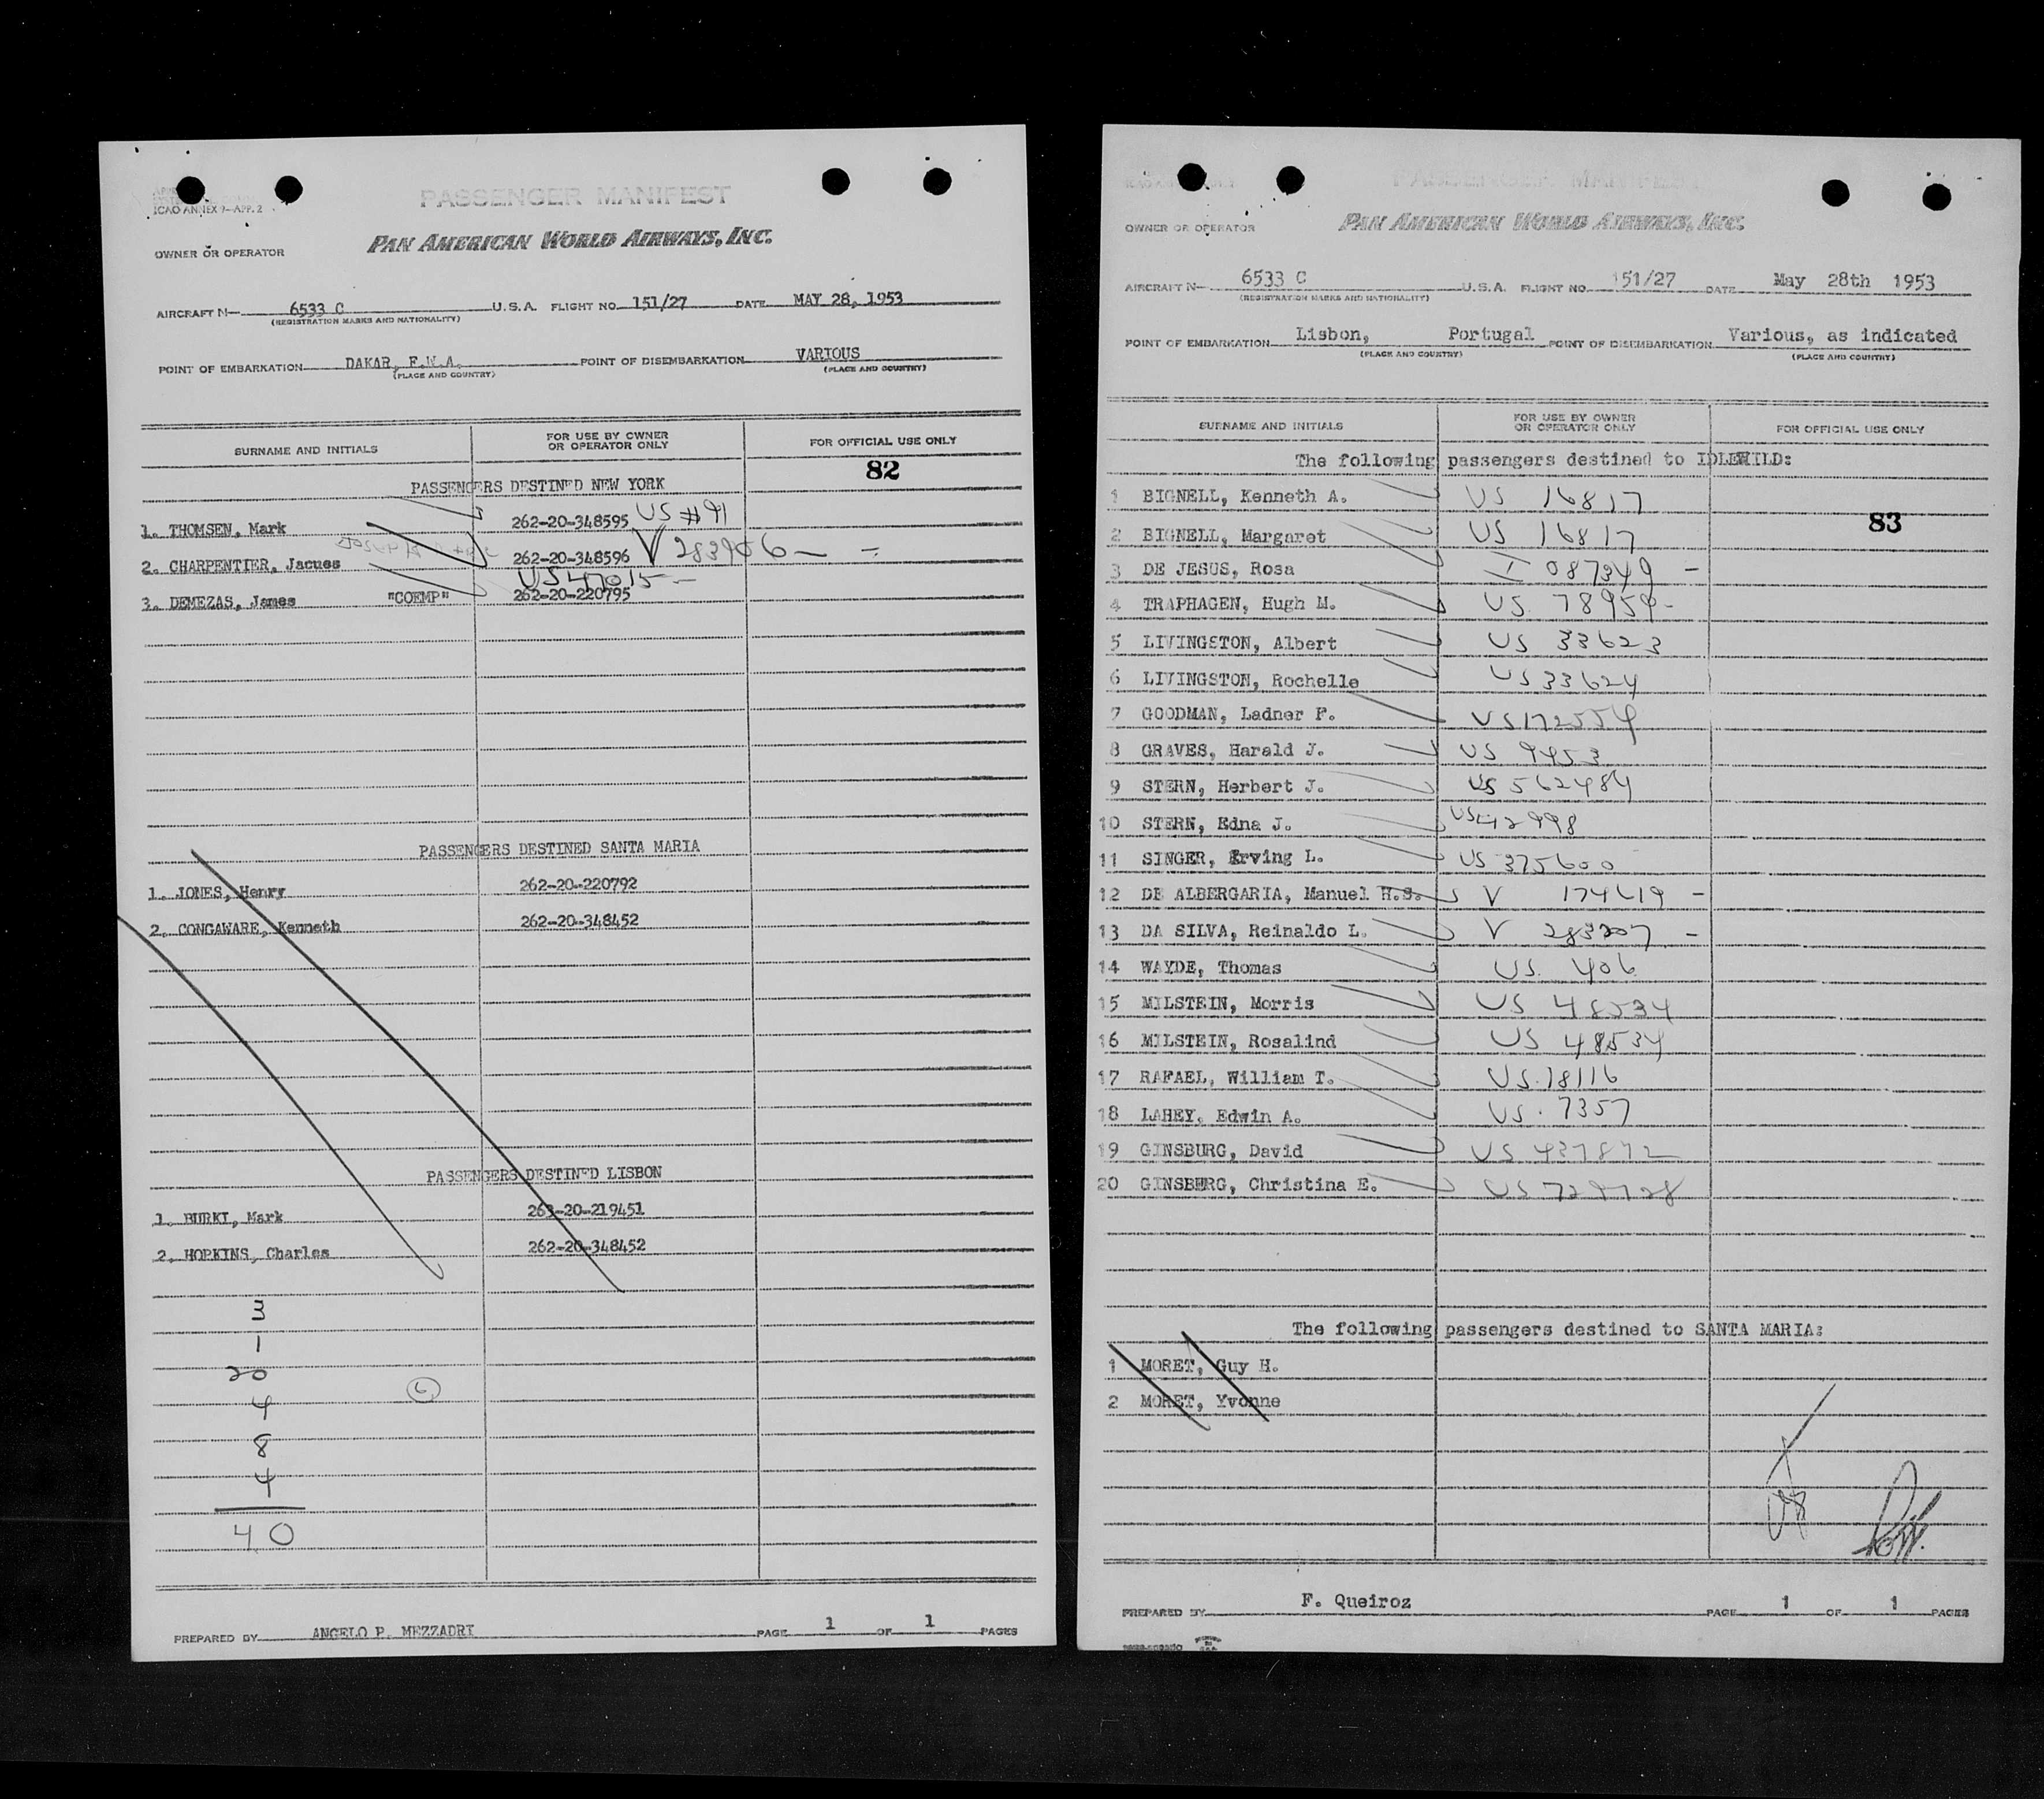 ICAO ANNEX 9—APP. 2
PASSENGER MANIFEST
OWNER OR OPERATOR
PAN AMERICAN WORLD AIRWAYS, INC.
AIRCRAFT N— 6533 C U.S.A. FLIGHT NO. 151/27 DATE MAY 28, 1953
(REGISTRATION MARKS AND NATIONALITY)
POINT OF EMBARKATION DAKAR, F.W.A. POINT OF DISEMBARKATION VARIOUS
(PLACE AND COUNTRY) (PLACE AND COUNTRY)
SURNAME AND INITIALS FOR USE BY OWNER OR OPERATOR ONLY FOR OFFICIAL USE ONLY
82
PASSENGERS DESTINED NEW YORK
1. THOMSEN, Mark 262-20-348595 US #91
2. CHARPENTIER, Jacues 262-20-348596 V 283906 —
US 47015 —
3. DEMEZAS, James "COEMP" 262-20-220795
PASSENGERS DESTINED SANTA MARIA
1. JONES, Henry 262-20-220792
2. CONGAWARE, Kenneth 262-20-348452
PASSENGERS DESTINED LISBON
1. BURKI, Mark 263-20-219451
2. HOPKINS, Charles 262-20-348452
3
1
20
4
8
4
40
PREPARED BY ANGELO P. MEZZADRI PAGE 1 OF 1 PAGES
PASSENGER MANIFEST
PAN AMERICAN WORLD AIRWAYS, INC.
OWNER OR OPERATOR
AIRCRAFT N— 6533 C U.S.A. FLIGHT NO. 151/27 DATE May 28th 1953
(REGISTRATION MARKS AND NATIONALITY)
POINT OF EMBARKATION Lisbon, Portugal POINT OF DISEMBARKATION Various, as indicated
(PLACE AND COUNTRY) (PLACE AND COUNTRY)
SURNAME AND INITIALS FOR USE BY OWNER OR OPERATOR ONLY FOR OFFICIAL USE ONLY
The following passengers destined to IDLEWILD:
1 BIGNELL, Kenneth A. US 16817
83
2 BIGNELL, Margaret US 16817
3 DE JESUS, Rosa I 087349 —
4 TRAPHAGEN, Hugh M. US 78959 -
5 LIVINGSTON, Albert US 33623
6 LIVINGSTON, Rochelle US 33624
7 GOODMAN, Ladner F. US 172554
8 GRAVES, Harald J. US 9453
9 STERN, Herbert J. US 562484
10 STERN, Edna J. US 42998
11 SINGER, Erving L. US 375600
12 DE ALBERGARIA, Manuel H.S. V 174619 —
13 DA SILVA, Reinaldo L. V 283207 —
14 WAYDE, Thomas US 406
15 MILSTEIN, Morris US 48534
16 MILSTEIN, Rosalind US 48534
17 RAFAEL, William T. US. 18116
18 LAHEY, Edwin A. US. 7357
19 GINSBURG, David US 437872
20 GINSBERG, Christina E. US 729728
The following passengers destined to SANTA MARIA:
1 MORET, Guy H.
2 MORET, Yvonne
PREPARED BY F. Queiroz PAGE 1 OF 1 PAGES